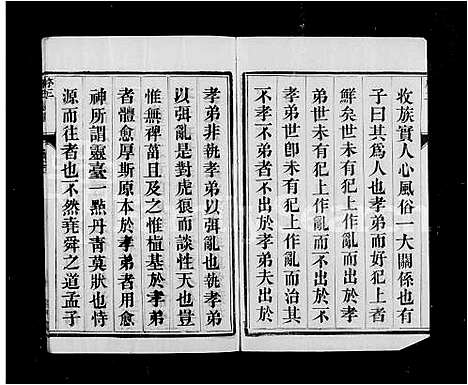 收族實人心風俗一大關係也有
子曰其爲人也孝弟而好犯上者
鮮矣世未有犯上作亂而出於孝
弟世未有犯上作亂而不出於不
孝弟世卽未有犯上作亂而治其
不孝不弟者不出於孝弟夫出於
孝弟非執孝弟以弭亂也執孝弟
以弭亂是對虎狼而談性天也豈
惟無裨萬且及之惟植基於孝弟
者體愈厚斯原本於孝弟者用愈
神所謂靈臺一點丹青莫狀也恃
源而往者也不然堯舜之道孟子